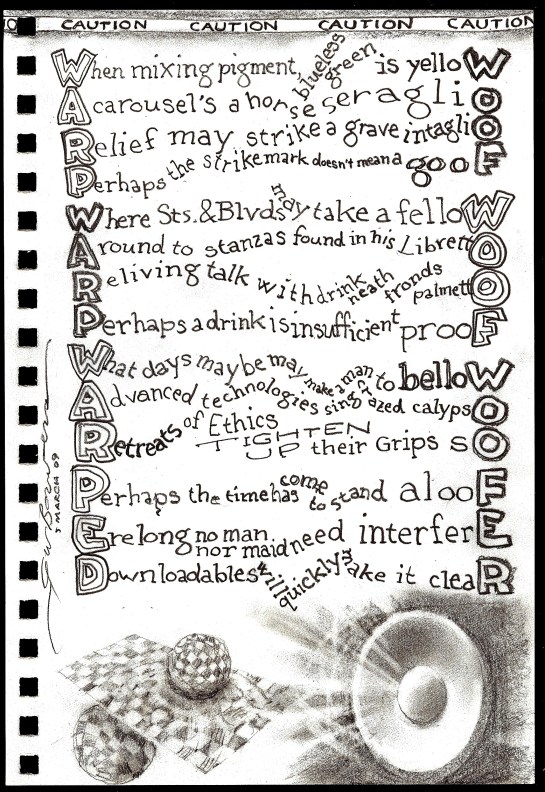 CAUTION CAUTION CAUTION CAUTION
When mixing pigment, blueless green is yelloW
A carousel's a horse seragliO
Relief may strike a grave intagliO
Perhaps the strikemark doesn't mean a gooF
Where Sts.&Blvds may take a felloW
Around to stanzas found in his LibrettO
Reliving talk with drink neath fronds palmettO
Perhaps a drink is insufficient prooF
What days may be may make a man to belloW
Advanced technologies sing crazed calypsO
Retreats of Ethics TIGHTEN UP their Grips sO
Perhaps the time has come to stand alooF
Erelong no man nor maid need interferE
Downloadables will quickly make it cleaR
MARCH 09